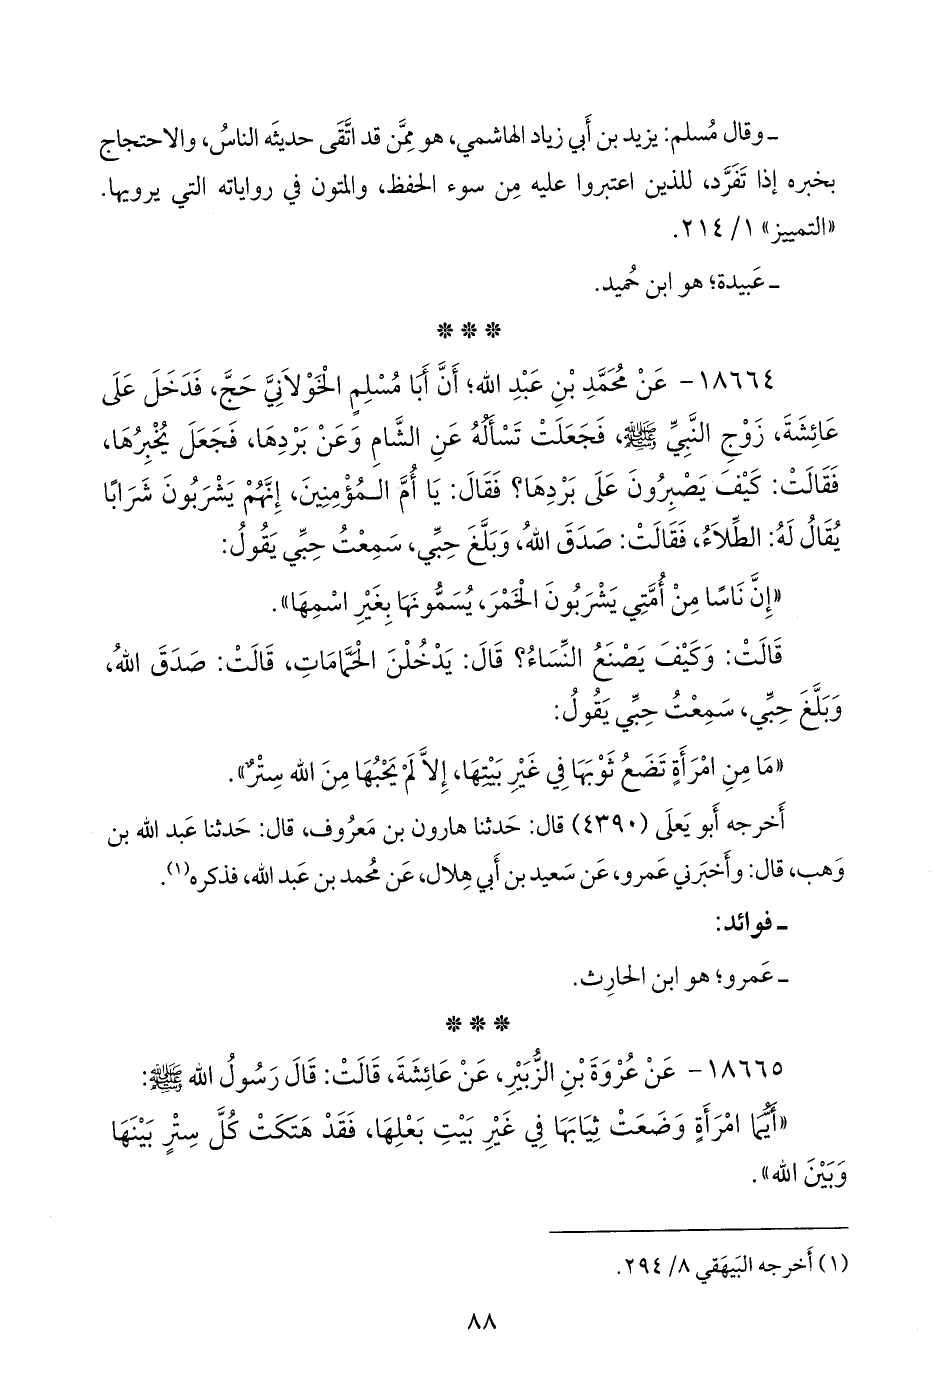 ـ وقال مُسلم: يزيد بن أَبي زياد الهاشمي، هو مِمَّن قد اتَّقَى حديثَه الناسُ، والاحتجاج
بخبره إذا تَفَرَّد، للذين اعتبروا عليه مِن سوء الحفظ، والمتون في رواياته التي يرويها.
«التمييز» ١/ ٢١٤.
ـ عَبيدة؛ هو ابن حُميد.
* * *
١٨٦٦٤- عَنْ مُحَمَّدِ بْنِ عَبْدِ الله؛ أَنَّ أَبَا مُسْلِمٍ الْخَوْلاَنِيَّ حَجَّ، فَدَخَلَ عَلَى
عَائِشَةَ، زَوْجِ النَّبِيِّ ﷺ، فَجَعَلَتْ تَسْأَلُهُ عَنِ الشَّامِ وَعَنْ بَرْدِهَا، فَجَعَلَ يُخْبِرُهَا،
فَقَالَتْ: كَيْفَ يَصْبِرُونَ عَلَى بَرْدِهَا؟ فَقَالَ: يَا أُمَّ الْمُؤْمِنِينَ، إِنَّهُمْ يَشْرَبُونَ شَرَابًا
يُقَالُ لَهُ: الطِّلاَءُ، فَقَالَتْ: صَدَقَ اللهُ، وَبَلَّغَ حِبِّي، سَمِعْتُ حِبِّي يَقُولُ:
«إِنَّ نَاسًا مِنْ أُمَّتِي يَشْرَبُونَ الْخَمْرَ، يُسَمُّونَهَا بِغَيْرِ اسْمِهَا».
قَالَتْ: وَكَيْفَ يَصْنَعُ النِّسَاءُ؟ قَالَ: يَدْخُلْنَ الْحَمَّامَاتِ، قَالَتْ: صَدَقَ اللهُ،
وَبَلَّغَ حِبِّي، سَمِعْتُ حِبِّي يَقُولُ:
«مَا مِنِ امْرَأَةٍ تَضَعُ ثَوْبَهَا فِي غَيْرِ بَيْتِهَا، إِلاَّ لَمْ يَحْجُبْهَا مِنَ الله سِتْرٌ».
أَخرجه أَبو يَعلَى (٤٣٩٠) قال: حَدثنا هارون بن مَعروف، قال: حَدثنا عَبد الله بن
وَهب، قال: وأَخبَرني عَمرو، عَن سَعيد بن أَبي هِلال، عَن مُحمد بن عَبد الله، فذكره(١).
ـ فوائد:
ـ عَمرو؛ هو ابن الحارِث.
* * *
١٨٦٦٥- عَنْ عُرْوَةَ بْنِ الزُّبَيْرِ، عَنْ عَائِشَةَ، قَالَتْ: قَالَ رَسُولُ الله ﷺ:
«أَيُّمَا امْرَأَةٍ وَضَعَتْ ثِيَابَهَا فِي غَيْرِ بَيْتِ بَعْلِهَا، فَقَدْ هَتَكَتْ كُلَّ سِتْرٍ بَيْنَهَا
وَبَيْنَ الله».
(١) أَخرجه البَيهَقي ٨/ ٢٩٤.
٨٨